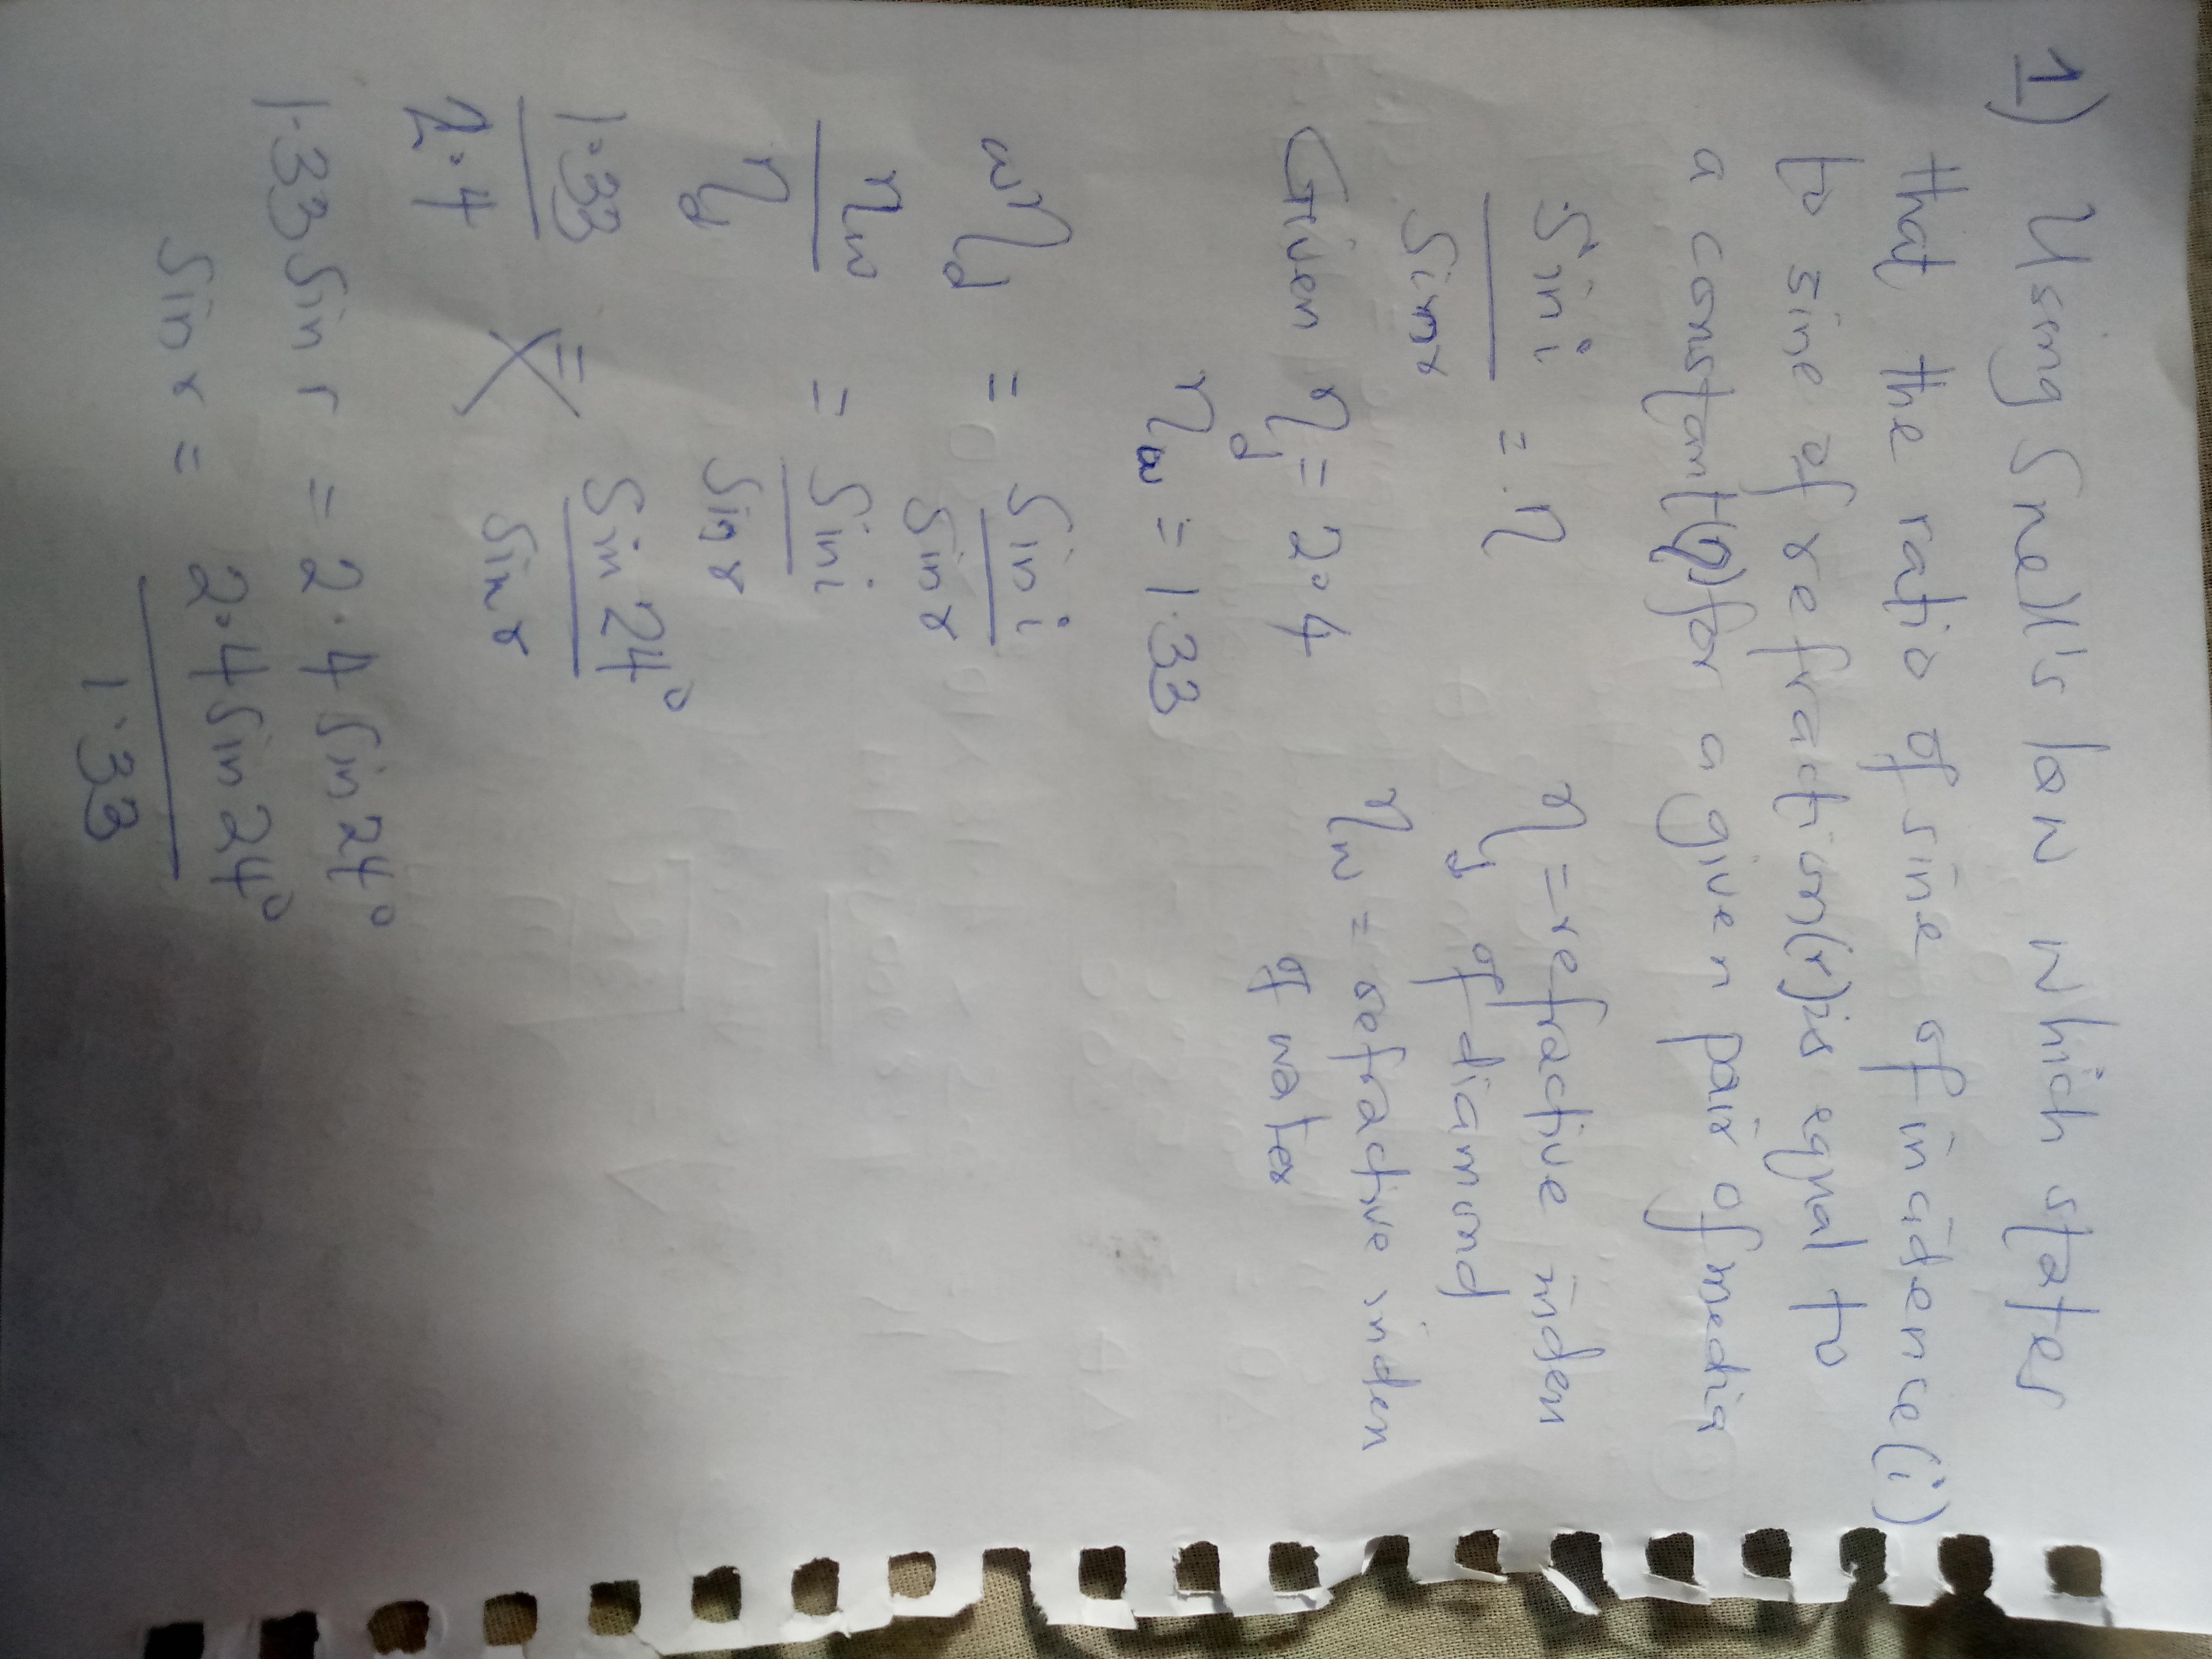 1) Using Snell's law which states
that the ratio of sine of incidence(i)
to sine of refraction(r) is equal to
a constant(η) for a given pair of media
Sin i / Sin r = η
η_d = refractive inden
of diamond
Given η_d = 2.4
η_w = refractive inden
of water
η_w = 1.33
wη_d = Sin i / Sin r
η_w / η_d = Sin i / Sin r
1.33 / 2.4 = Sin 24° / Sin r
1.33 Sin r = 2.4 Sin 24°
Sin r = 2.4 Sin 24° / 1.33